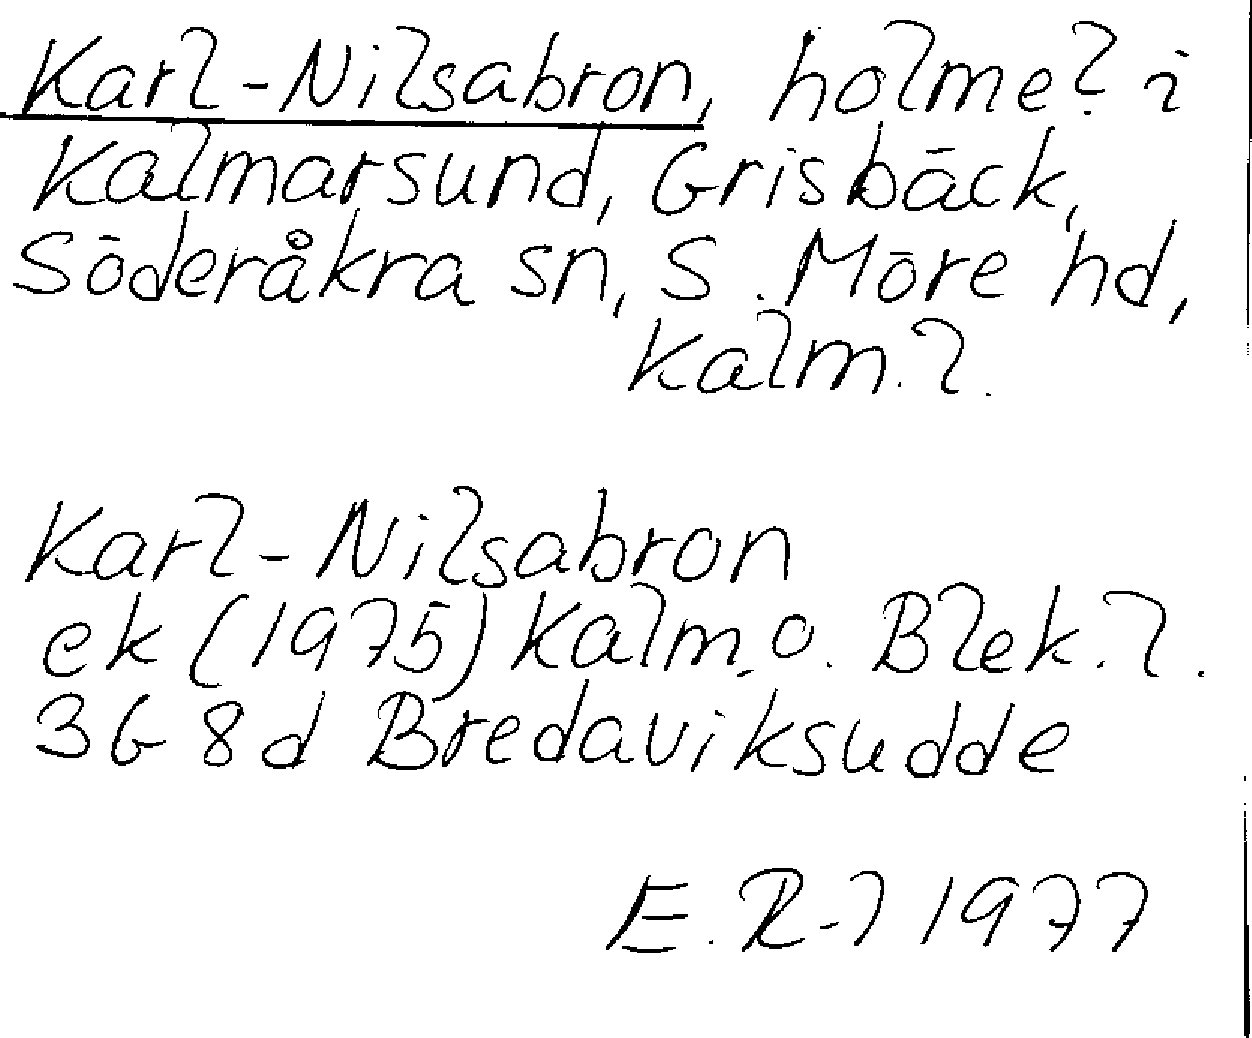 Karl-Nilsabron, holme? i
Kalmarsund, Grisbäck,
Söderåkra sn, S. Möre hd,
Kalm. l.
Karl-Nilsabron
ek (1975) Kalm. o. Blek. l.
3G 8d Bredaviksudde
E. R-l 1977